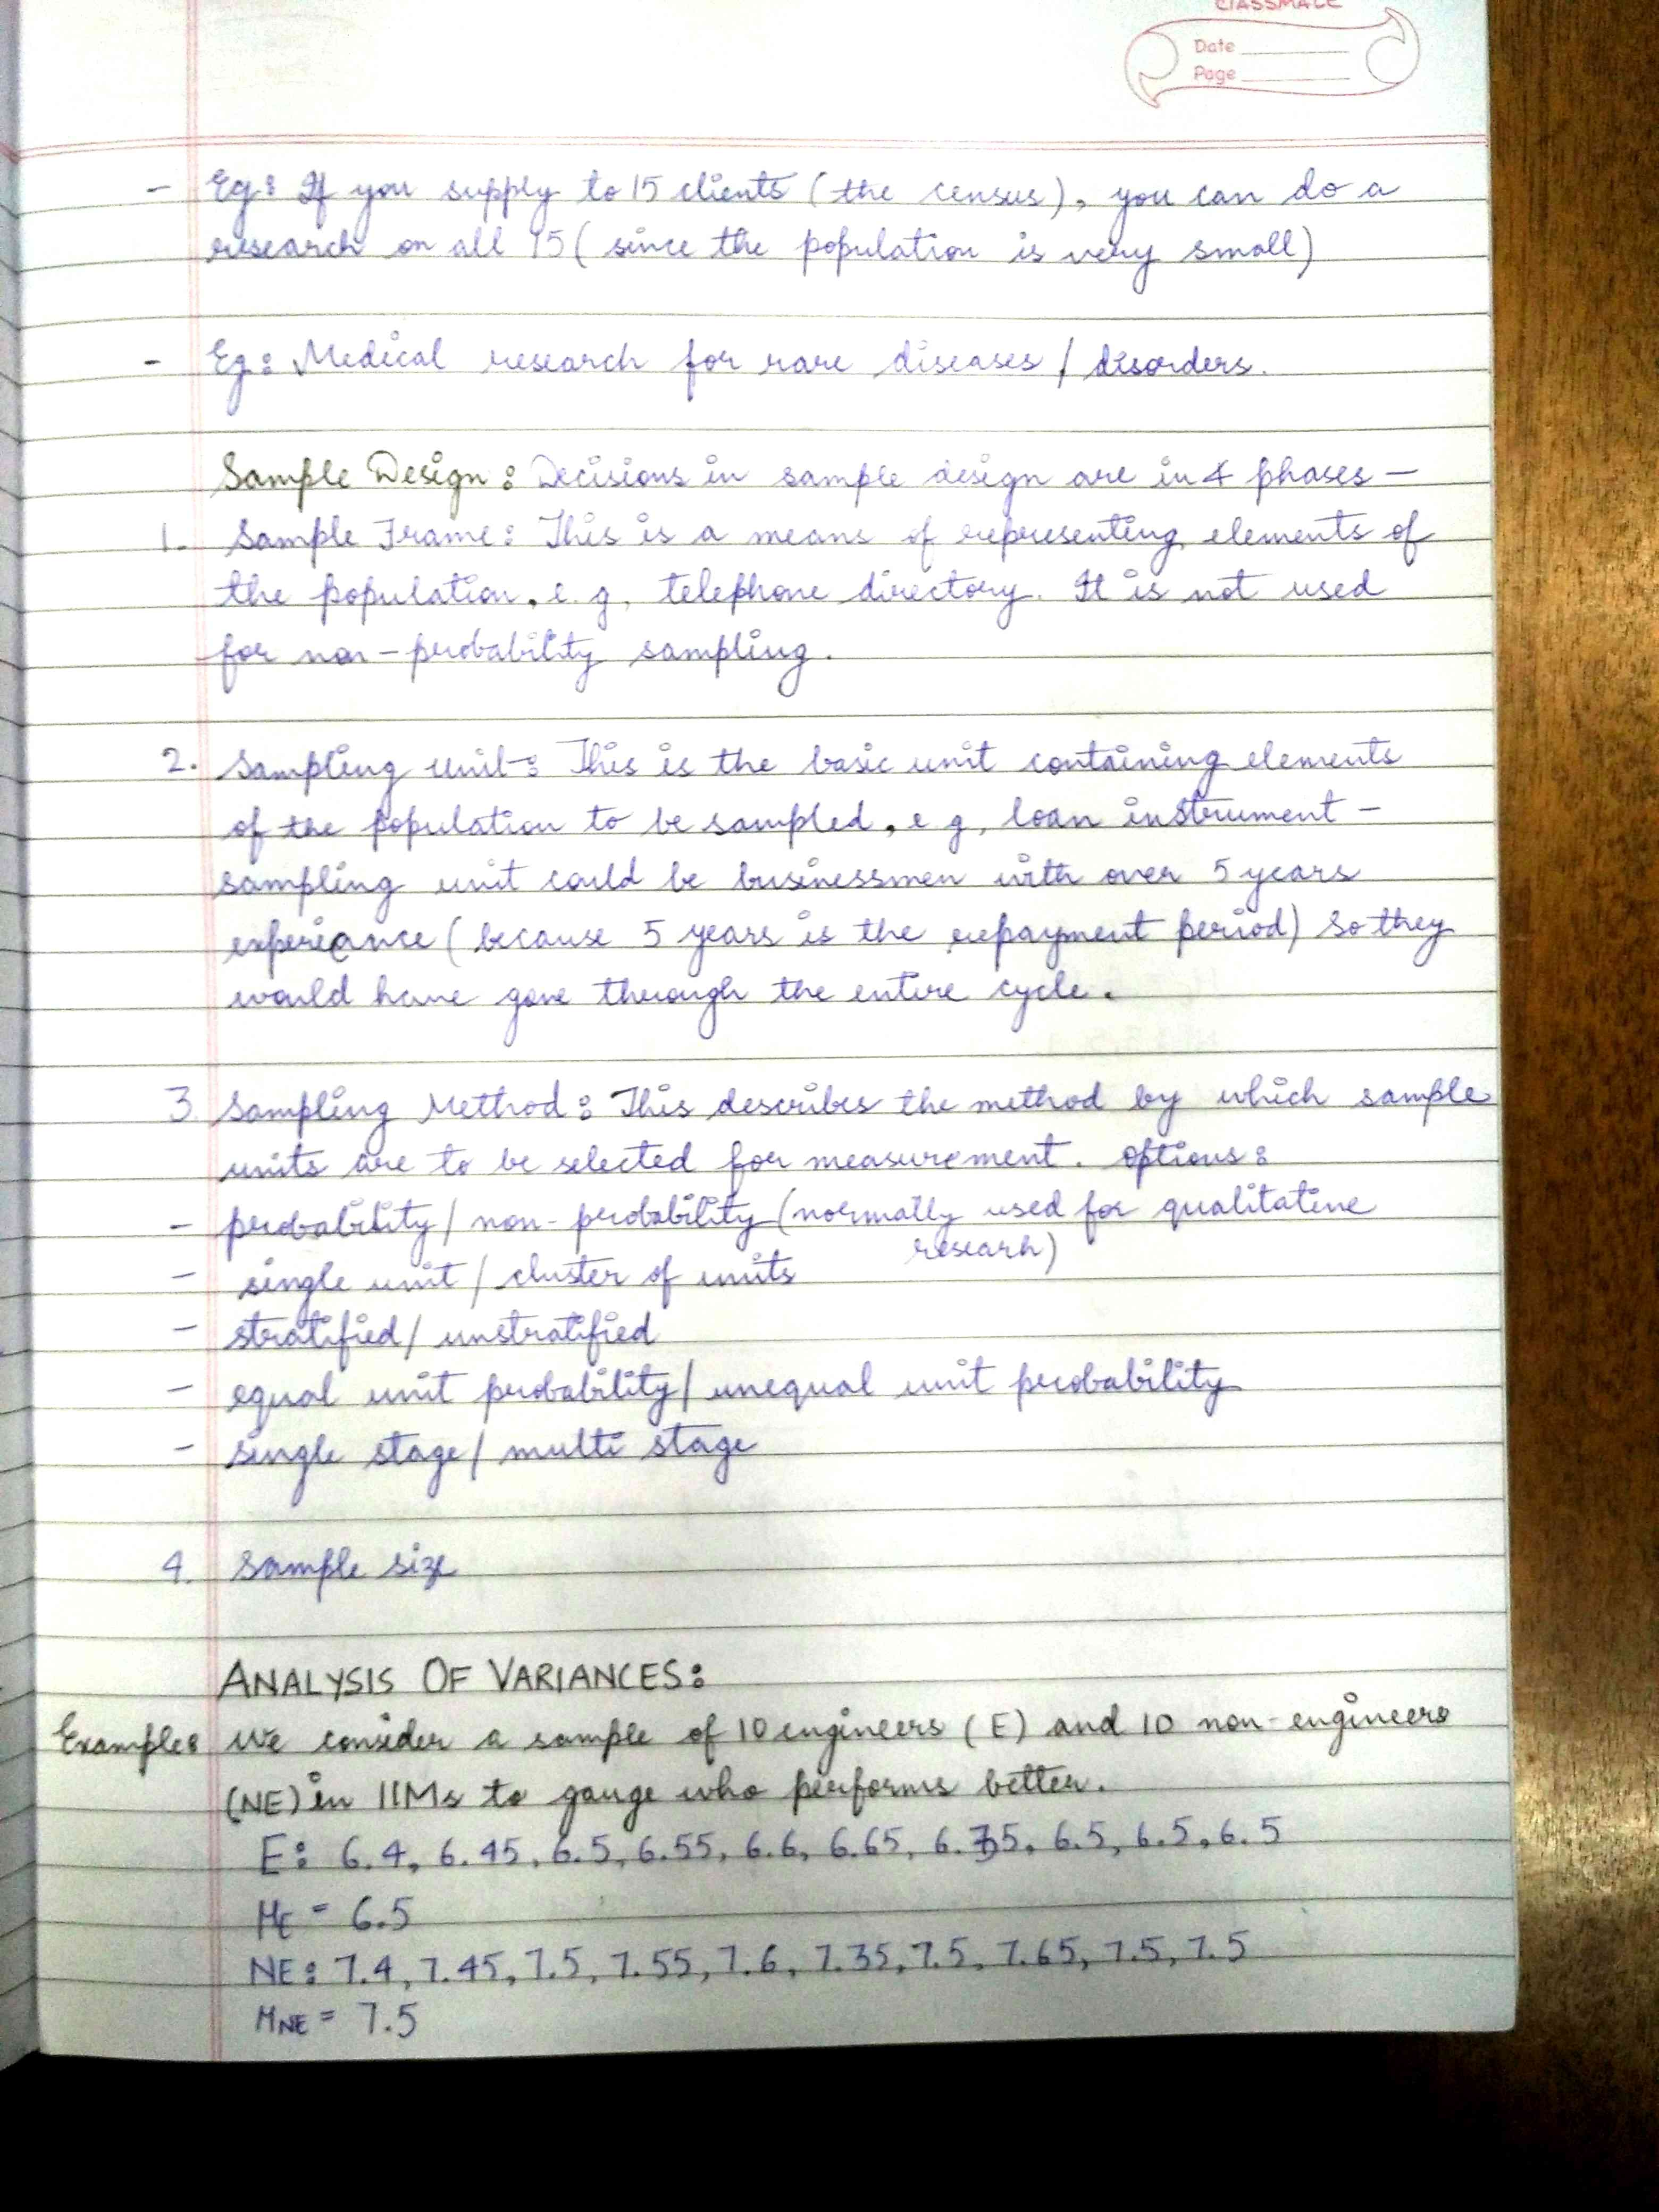 classmate
Date
Page
- Eg: If you supply to 15 clients (the census), you can do a
research on all 15 (since the population is very small)
- Eg: Medical research for rare diseases / disorders.
Sample Design: Decisions in sample design are in 4 phases -
1. Sample Frame: This is a means of representing elements of
the population, e.g. telephone directory. It is not used
for non-probability sampling.
2. Sampling unit: This is the basic unit containing elements
of the population to be sampled, e.g, loan instrument -
sampling unit could be businessmen with over 5 years
expericance (because 5 years is the repayment period) so they
would have gone through the entire cycle.
3. Sampling Method: This describes the method by which sample
units are to be selected for measurement. Options:
- probability / non-probability (normally used for qualitative
researh)
- single unit / cluster of units
- stratified / unstratified
- equal unit probability / unequal unit probability
- single stage / multi stage
4. Sample size
ANALYSIS OF VARIANCES:
Example: We consider a sample of 10 engineers (E) and 10 non-engineers
(NE) in IIMs to gauge who performs better.
E: 6.4, 6.45, 6.5, 6.55, 6.6, 6.65, 6.35, 6.5, 6.5, 6.5
ME = 6.5
NE: 7.4, 7.45, 7.5, 7.55, 7.6, 7.35, 7.5, 7.65, 7.5, 7.5
MNE = 7.5